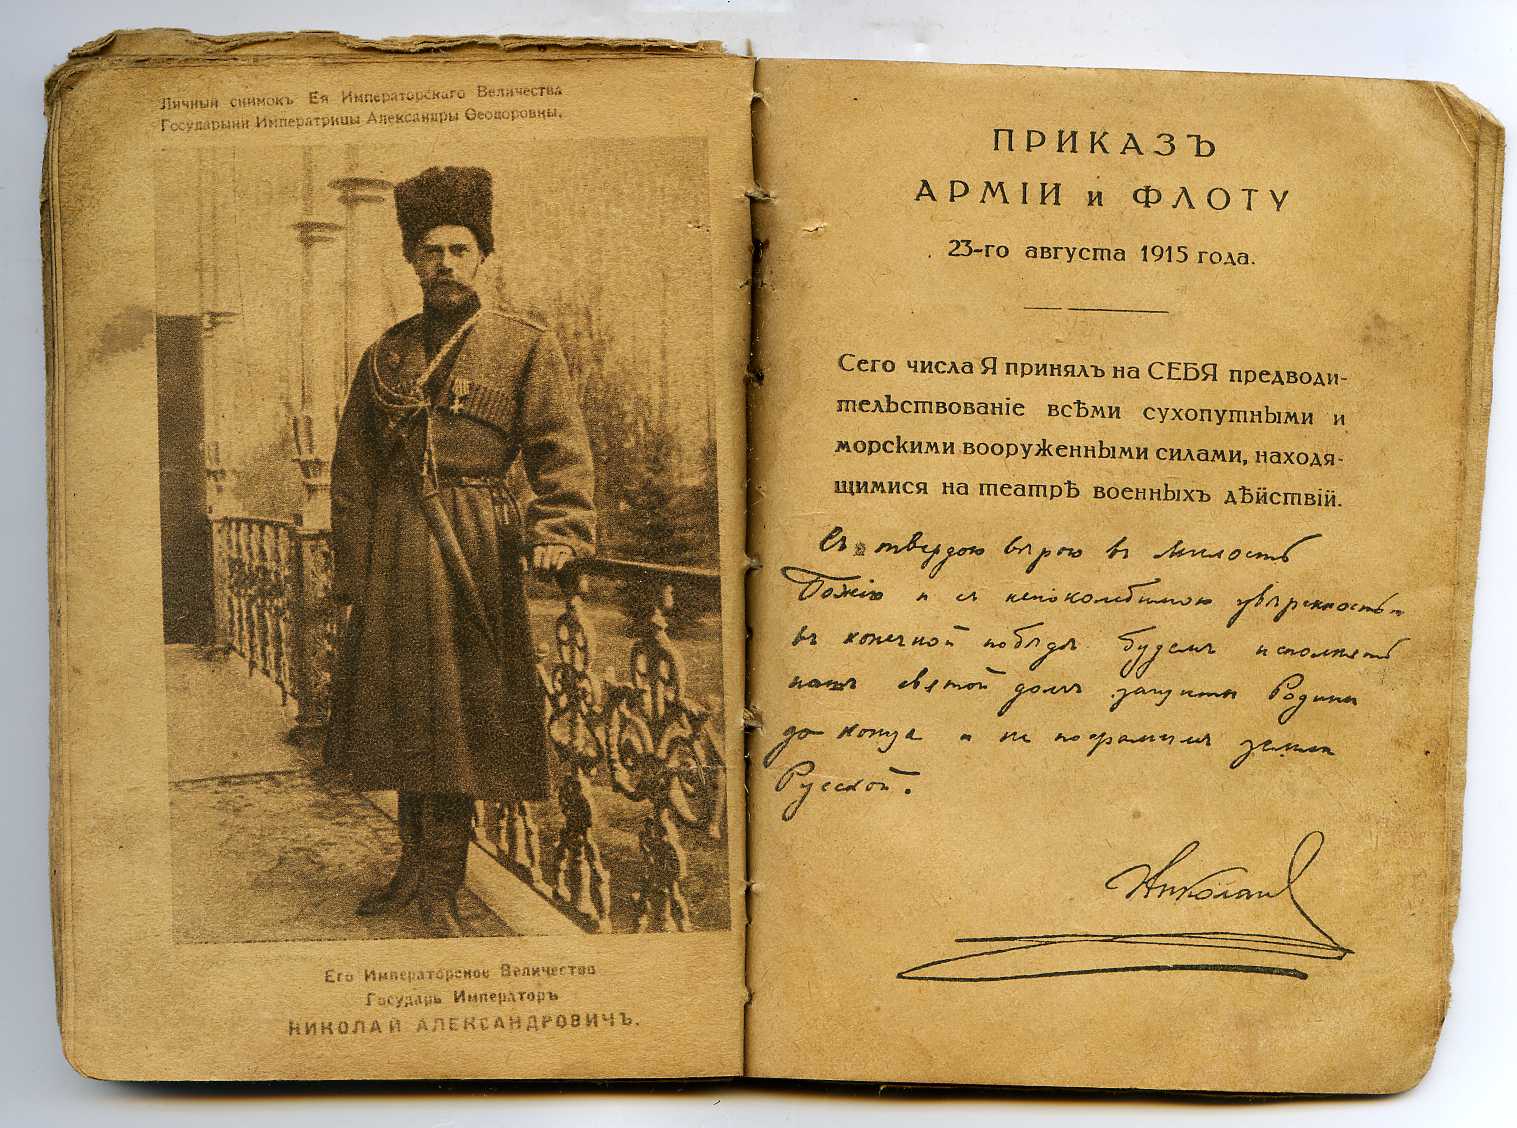 Личный снимокъ Ея Императорскаго Величества
Государыни Императрицы Александры Ѳеодоровны.
Его Императорское Величество
Государь Императоръ
НИКОЛАЙ АЛЕКСАНДРОВИЧЪ.
ПРИКАЗЪ
АРМІИ и ФЛОТУ
23-го августа 1915 года.
Сего числа Я принялъ на СЕБЯ предводи-
тельствованіе всѣми сухопутными и
морскими вооруженными силами, находя-
щимися на театрѣ военныхъ дѣйствій.
Съ твердою вѣрою въ милость
Божію и съ непоколебимою увѣренностью
въ конечной побѣдѣ будемъ исполнять
нашъ святой долгъ защиты Родины
до конца и не посрамимъ земли
Русской.
Николай